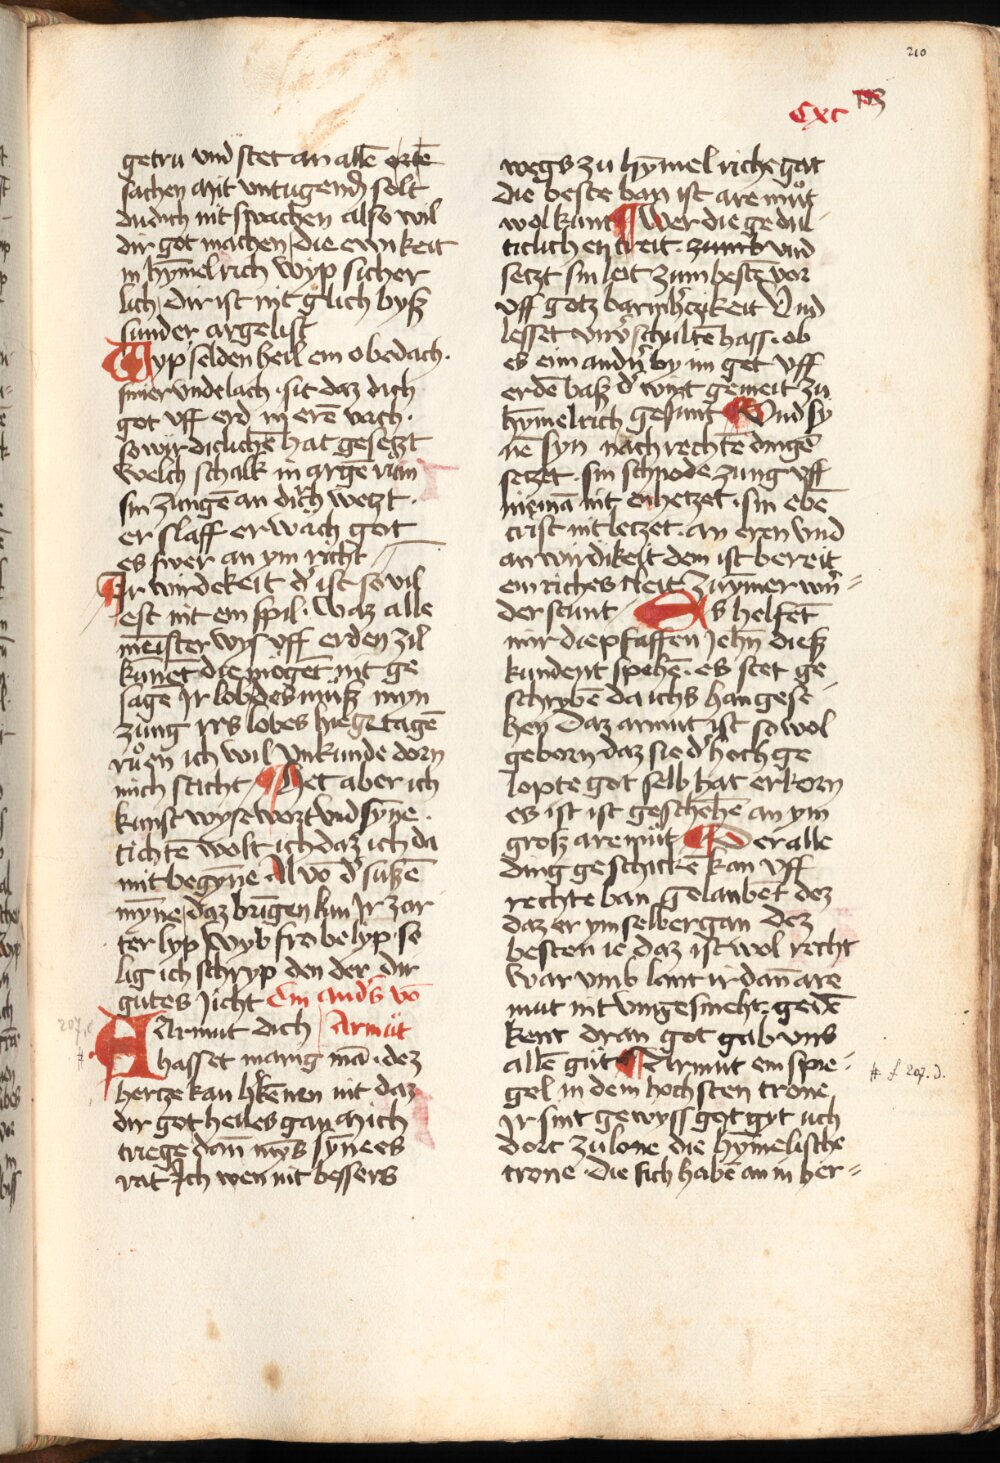 210
Cxc
getru und stet an allē ortē
sachen Mit untugend solt
du dich nit swachen also wil
dir got machen die ewikeit
in hȳmelrich Wyp sicher
lich dir ist nit glich byß
sunder argelist
Wyp selden heil ein obedach.
siner unde lach. sit daz dich
got uff erd in erē vach.
so wirdiclichē hat gesetzt
Welch schalk in argē
sin zungē an dich wetzt.
er slaff er wach got
es swer an ym richt
Ir wirdekeit d' ist so vil
est nit ein spil. Waz alle
meister wys uff erden zil
kūnēt die mogēt nit ge
sagē Ir lob des muß myn
zung irs lobes hie getagē
ruͦen ich wil unkunde dorn
mich sticht Het aber ich
kunst wyse wort und sȳne.
tichtē wolt ich daz ich da
mit begȳne Al vō d' sußē
mȳne daz brīgen kan Ir zar
ter lyp Wyb fro belyp. se
lig ich schryp den der dir
gutes gicht Ein and's vō
Armut
207,c
Armut dich
hasset manig mā. dez
hertze kan k'kēnen nit daz
dir got heiles gan Mich
triege dañ mȳs sȳnes
rat Ich wen nit bessers
wegs zu hȳmelriche gat
die beste ban ist aremuͦt
wol kunt Wer die gedul
ticlichen treit. zumb und
setzt sin leit zum bestē vor
uff gotz barmh'czikeit Und
lesset unv'schultē hass. ob
es eim and'n by im get uff
erdē baß d' wirt gemeit zu
hȳmelrich gesunt Und sy
nē syn nach rechtē dingē
setzet. sin schnode zung uff
niemā nit enhetzet. sin ebē
crist nit letzet. an eren und
an wirdikeit dem ist bereit
ein riches cleit zu ȳmer wer=
der stunt Es helfēt
mir die pfaffen Jehn dieß
kundent spehē. es stet ge
schrybē da ichs han gese
hen Daz armut ist so wol
geborn daz sie d' hoch ge
lopte got selb hat erkorn
es ist ist geschehē an ym
groß aremuͦt Der alle
ding geschickē kan uff
rechte ban gelaubēt dez
daz er ym selber gan dez
besten ie daz ist wol recht
War umb lont ir dañ are
mut nit ungesmeht. gedē
kent dran got gab uns
allē guͦt Armut ein spie-
gel in dem hochsten trone
Ir sint gewyss got gyt uch
dort zu lone die hȳmelische
crone. die sich habē an in her=
# f. 207. d.